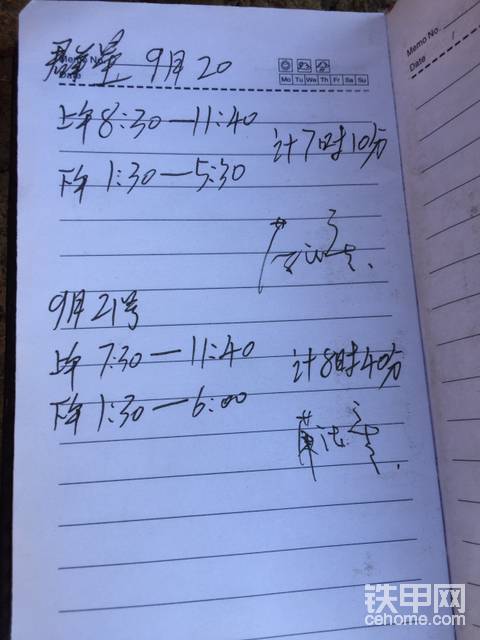 Memo No.
Date
9月20
Mo Tu We Th Fr Sa Su
上午8:30—11:40
计7时10分
下午1:30—5:30
9月21号
上午7:30—11:40
计8时40分
下午1:30—6:00
Memo No.
Date
铁甲网
cehome.com